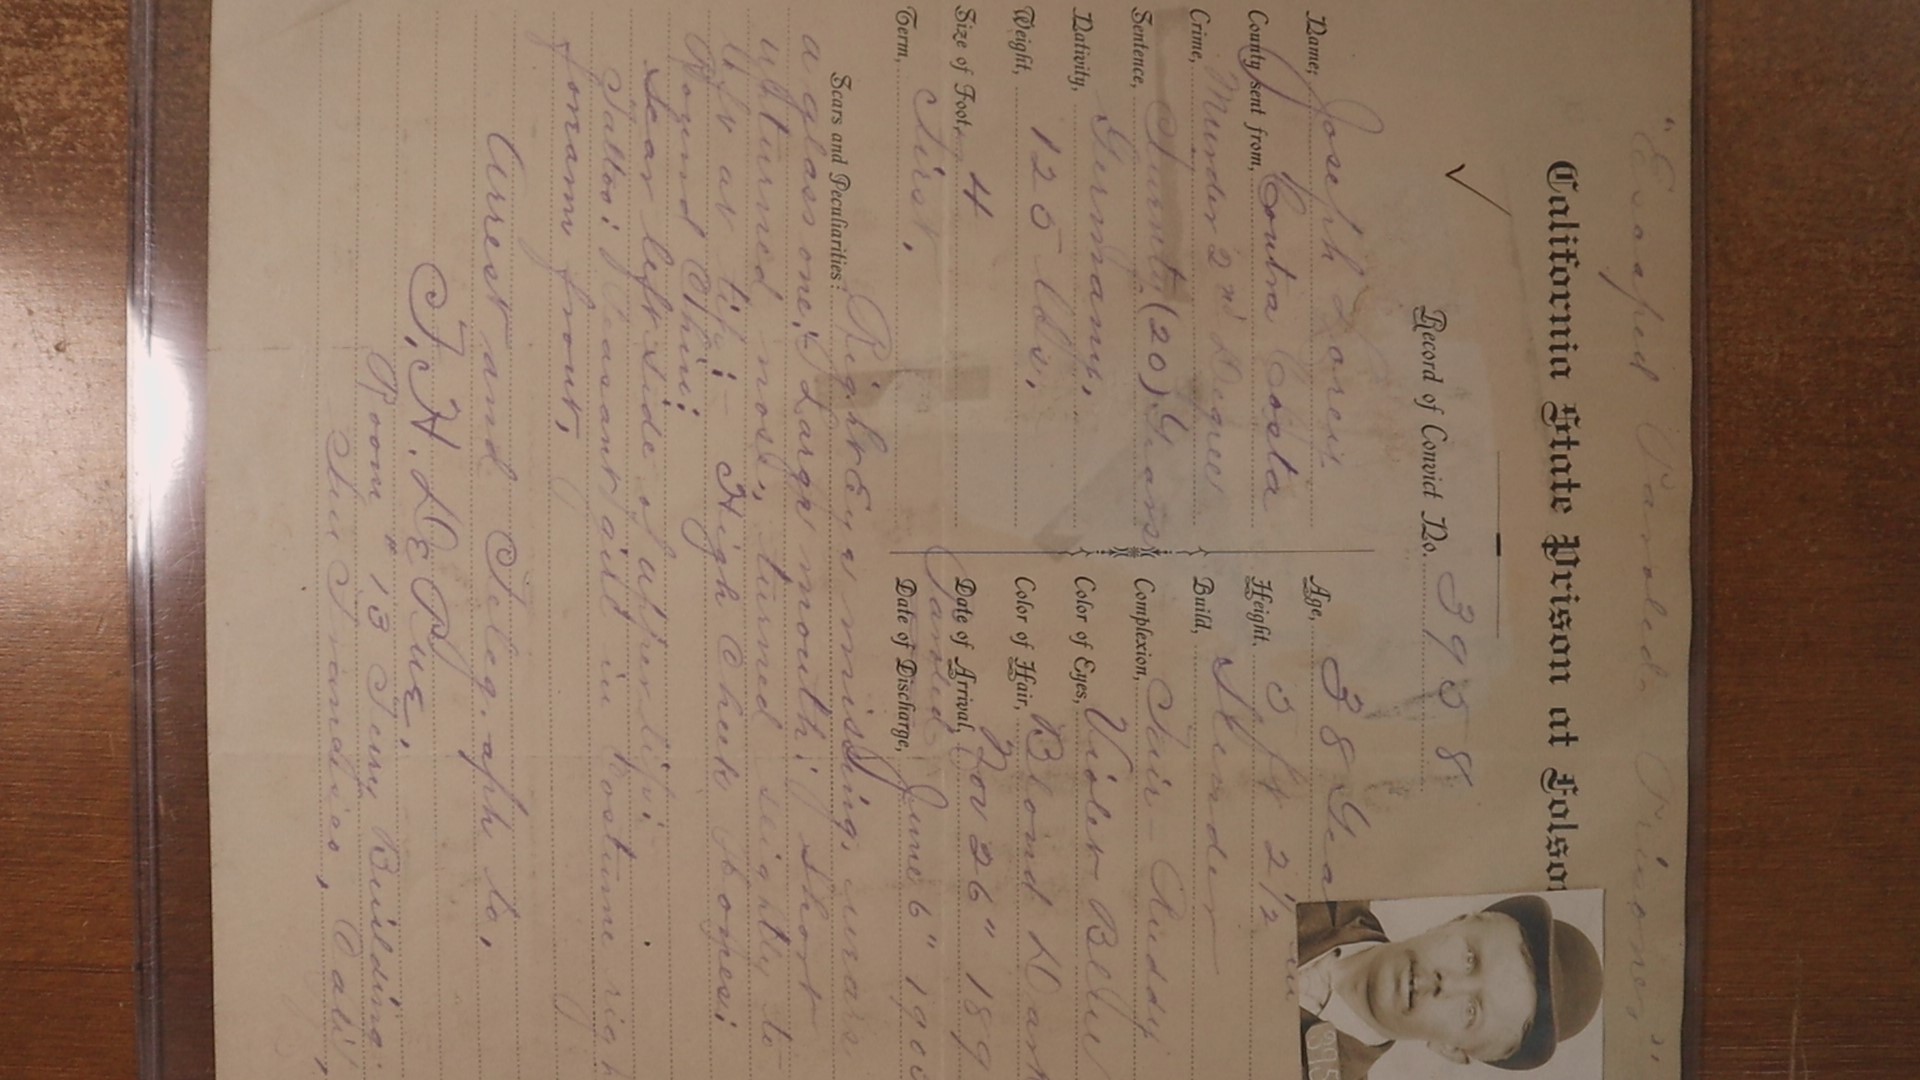 "Escaped Paroled Prisoner"
California State Prison at Folso
Record of Convict No. 3958
Name, Joseph Lorenz
County sent from, Contra Costa
Crime, Murder 2nd Degree
Sentence, Twenty (20) Years
Nativity, Germany.
Weight, 125 lbs.
Size of Foot, 4
Term, First.
Age, 38 Yea
Height, 5 ft 2 1/2 in
Build, Slender
Complexion, Fair-Ruddy
Color of Eyes, Violet Blue
Color of Hair, Blond Dark
Date of Arrival, Nov 26" 189
Paroled
Date of Discharge, June 6" 190
395
Scars and Peculiarities: Right Eye missing, wears
a glass one; Large mouth; short
upturned nose, turned slightly to
left at tip; High Cheek bones;
Round Chin;
Scar left side of upper lip;
Tattoo: Peasant girl in costume righ
forearm front.
Arrest and Telegraph to,
T. H. DePue,
Room #13 Ferry Building
San Francisco, Calif,